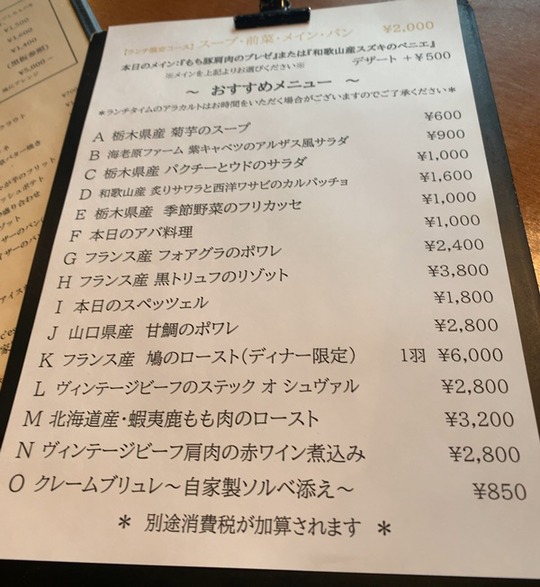 【ランチ限定コース】スープ・前菜・メイン・パン ¥2,000
本日のメイン:『もち豚肩肉のブレゼ』または『和歌山産スズキのベニエ』
※メインを上記よりお選びください※ デザート +¥500
~ おすすめメニュー ~
*ランチタイムのアラカルトはお時間をいただく場合がございますのでご了承ください*
A 栃木県産 菊芋のスープ ¥600
B 海老原ファーム 紫キャベツのアルザス風サラダ ¥900
C 栃木県産 パクチーとウドのサラダ ¥1,000
D 和歌山産 炙りサワラと西洋ワサビのカルパッチョ ¥1,600
E 栃木県産 季節野菜のフリカッセ ¥1,000
F 本日のアバ料理 ¥1,000
G フランス産 フォアグラのポワレ ¥2,400
H フランス産 黒トリュフのリゾット ¥3,800
I 本日のスペッツェル ¥1,800
J 山口県産 甘鯛のポワレ ¥2,800
K フランス産 鳩のロースト(ディナー限定) 1羽 ¥6,000
L ヴィンテージビーフのステック オ シュヴァル ¥2,800
M 北海道産・蝦夷鹿もも肉のロースト ¥3,200
N ヴィンテージビーフ肩肉の赤ワイン煮込み ¥2,800
O クレームブリュレ~自家製ソルベ添え~ ¥850
* 別途消費税が加算されます *